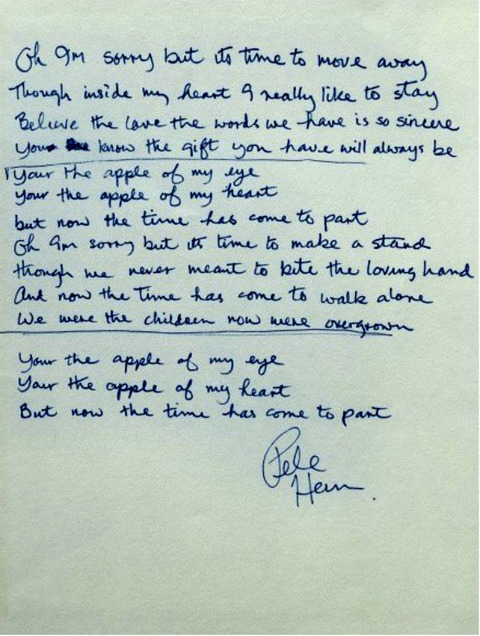 Oh Im sorry but its time to move away
Though inside my heart I really like to stay
Believe the love the words we have is so sincere
You know the gift you have will always be
Your the apple of my eye
Your the apple of my heart
but now the time has come to part
Oh Im sorry but its time to make a stand
though we never meant to bite the loving hand
And now the time has come to walk alone
We were the children now were overgrown
Your the apple of my eye
Your the apple of my heart
But now the time has come to part
Pete
Ham